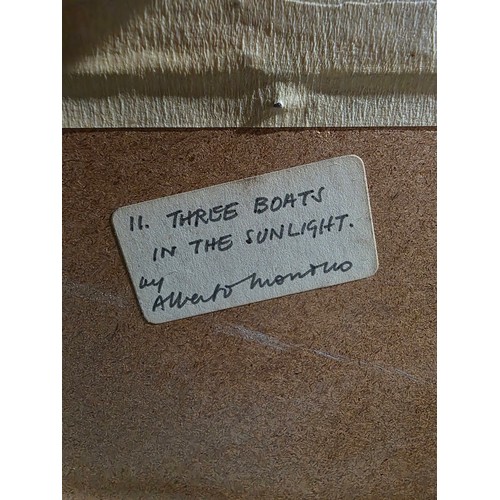 11. THREE BOATS
IN THE SUNLIGHT.
by
Alberto Morrocco